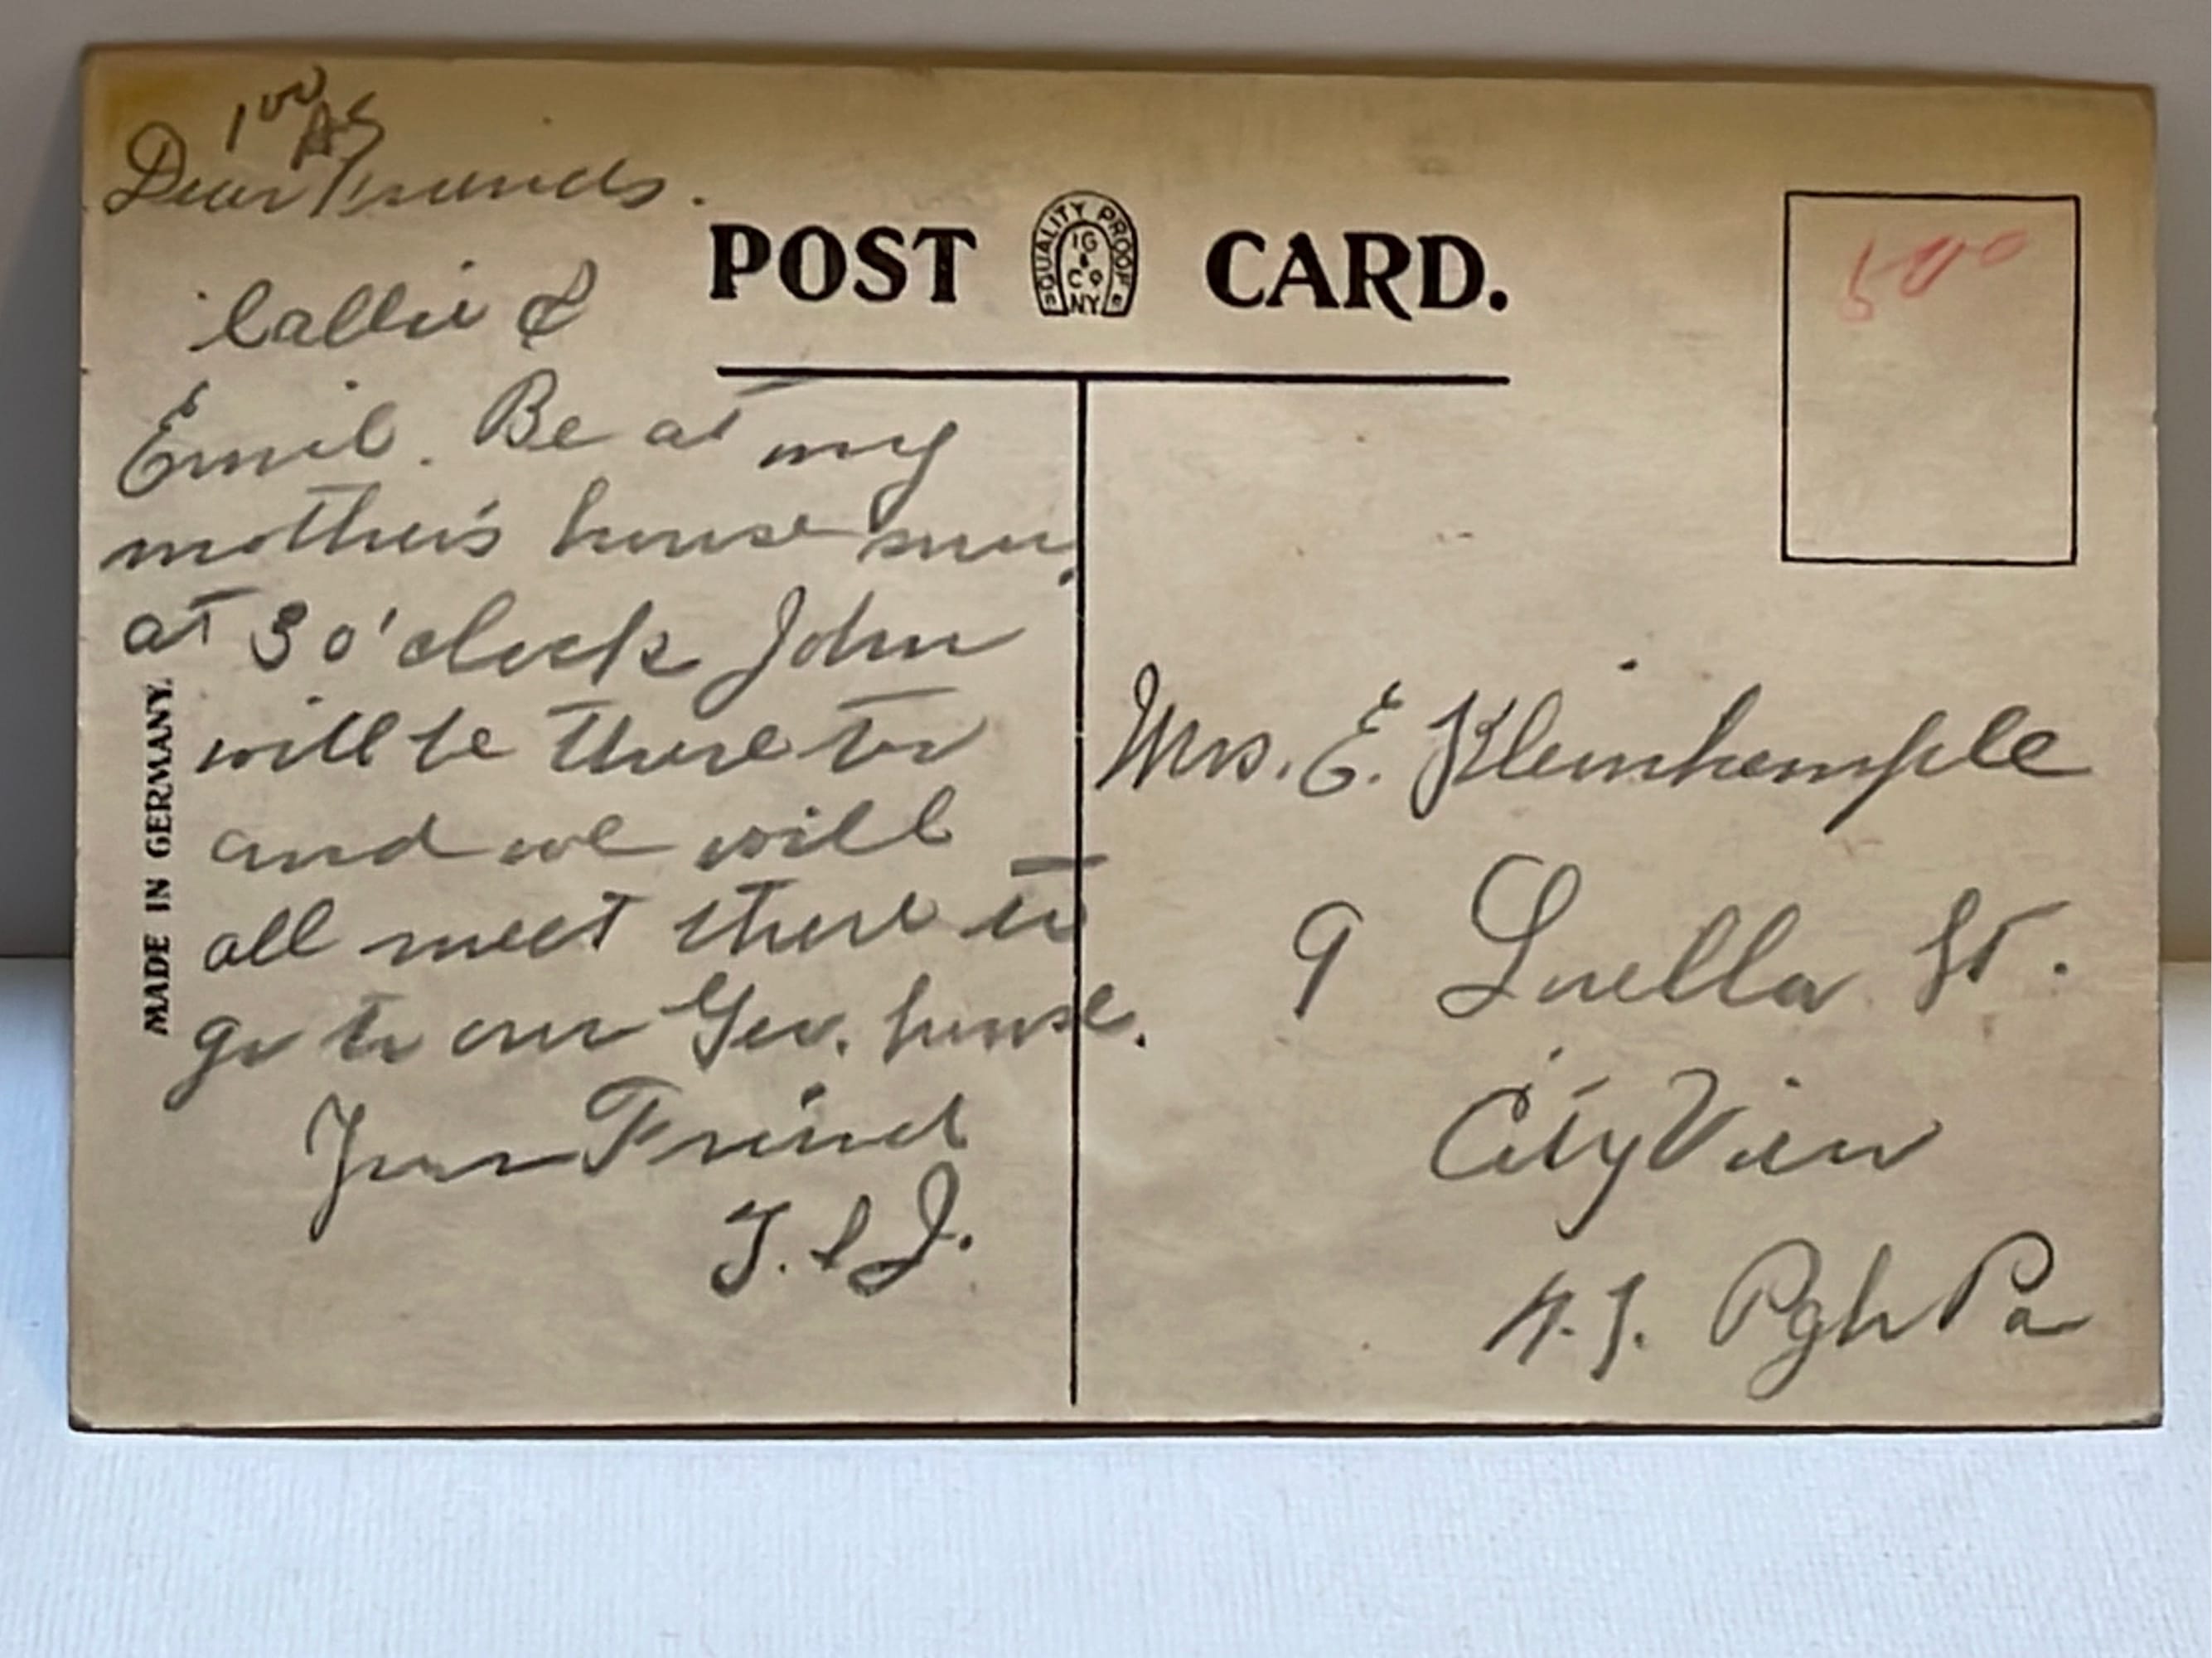 1 00
AS
Dear Friends.
Callie &
Emil. Be at my
mother's house sun.
at 3 o'clock John
will be there to
and we will
all meet there to
go to our Geo. house.
Your Friend
T. & J.
MADE IN GERMANY.
POST CARD.
QUALITY PROOF
IG
& Co
NY
500
Mrs. E. Kleinhemple
9 Luella St.
City View
N.S. Pgh Pa